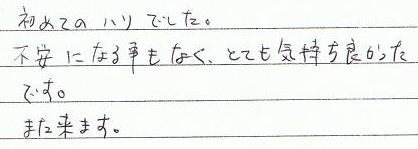 初めてのハリでした。
不安になる事もなく、とても気持ち良かった
です。
また来ます。